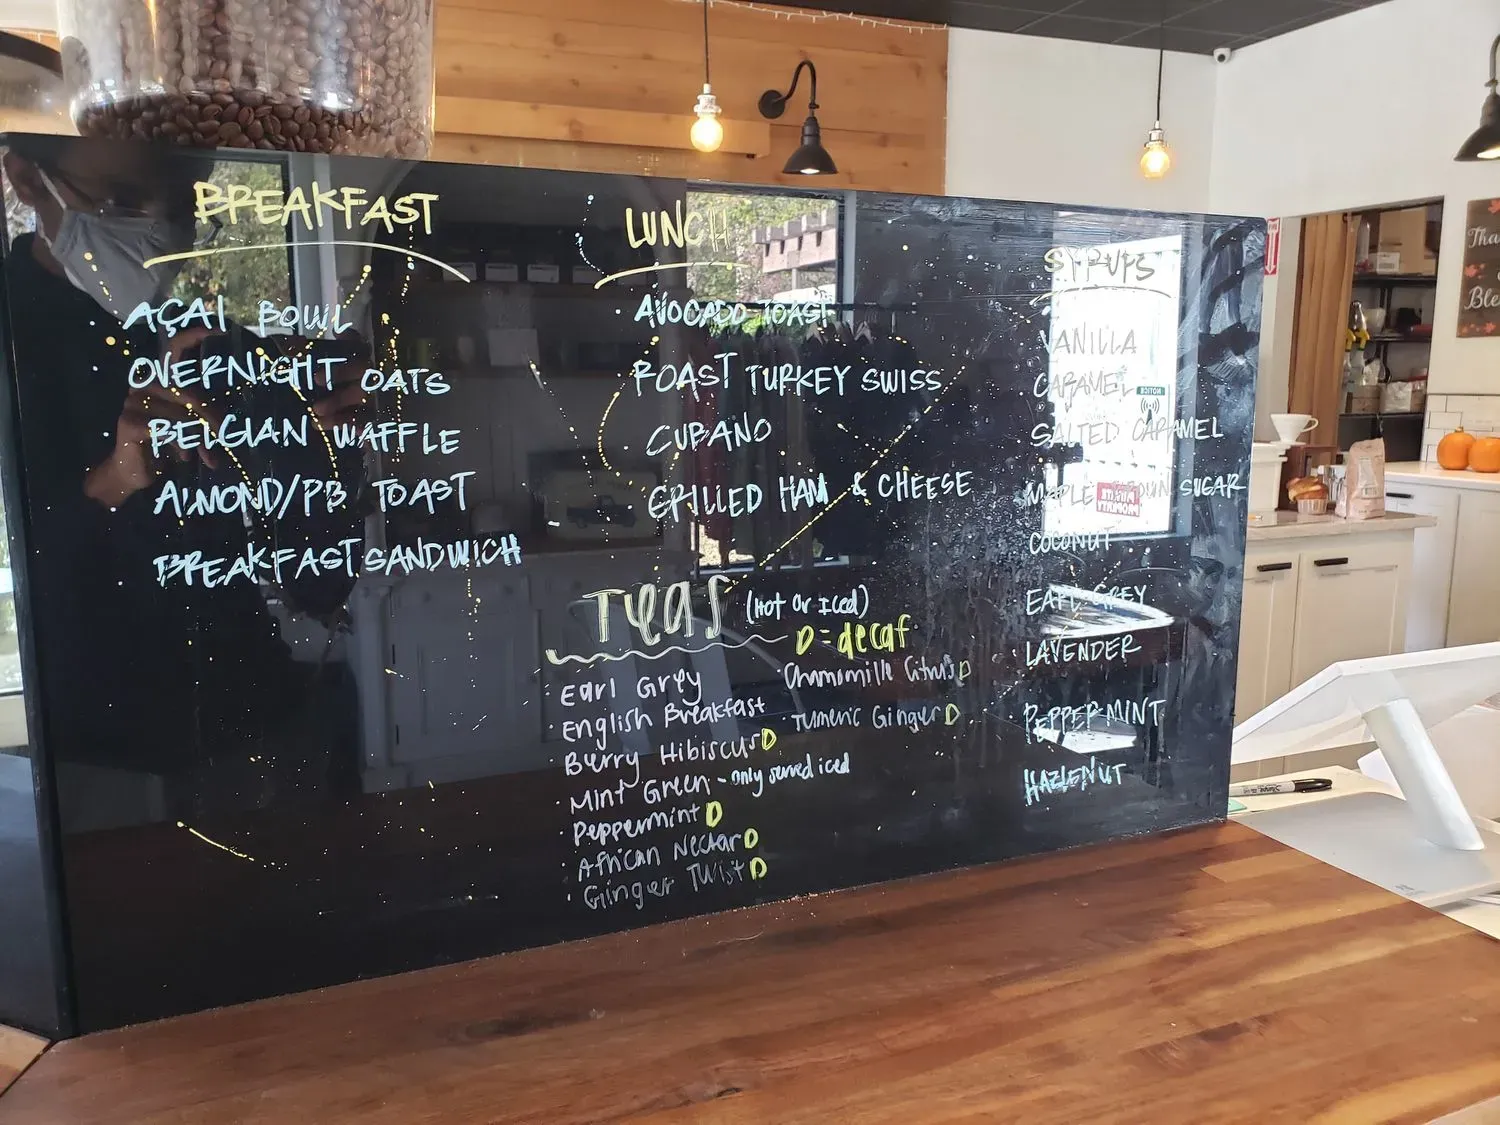 BREAKFAST
• AÇAI BOWL
• OVERNIGHT OATS
• BELGIAN WAFFLE
• ALMOND/PB TOAST
• BREAKFAST SANDWICH
LUNCH
• AVOCADO TOAST
• ROAST TURKEY SWISS
• CUBANO
• GRILLED HAM & CHEESE
TEAS (Hot or Iced)
D = decaf
• Earl Grey
• English Breakfast
• Berry Hibiscus D
• Mint Green - only served iced
• Peppermint D
• African Nectar D
• Ginger Twist D
• Chamomille Citrus D
• Tumeric Ginger D
SYRUPS
VANILLA
CARAMEL
SALTED CARAMEL
MAPLE BROWN SUGAR
COCONUT
EARL GREY
LAVENDER
PEPPERMINT
HAZLENUT
NOTICE
Sharpie